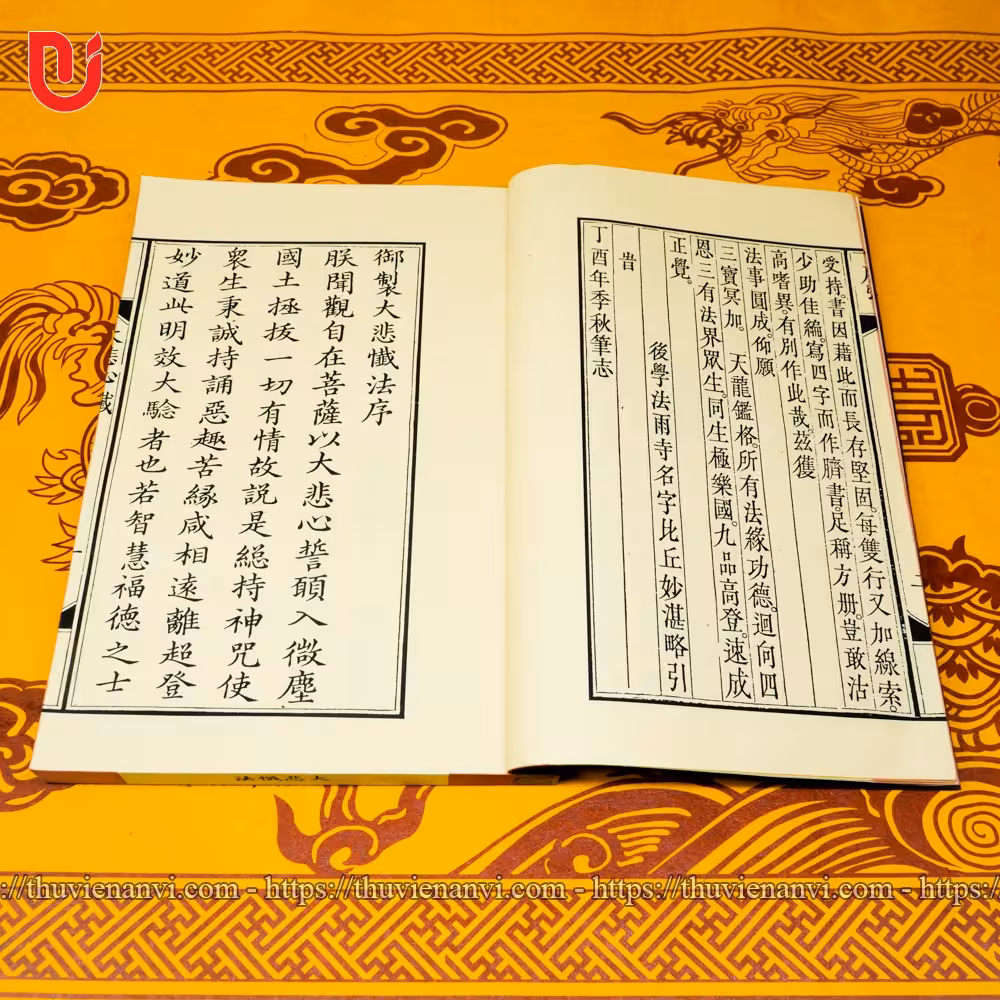 受持。書因藉此而長存堅固。每雙行又加線索。
少助佳編。寫四字而作臍書。足稱方册。豈敢沽
高嗜異。有別作此哉。茲獲
法事圓成。仰願
三寶冥加。 天龍鑑格。所有法緣功德。迴向四
恩三有法界眾生。同生極樂國。九品高登。速成
正覺。
旹 後學法雨寺名字比丘妙湛略引
丁酉年季秋筆志
二
御製大悲懺法序
朕聞觀自在菩薩以大悲心誓願入微塵
國土拯拔一切有情故說是緫持神咒使
衆生秉誠持誦惡趣苦緣咸相遠離超登
妙道此明效大驗者也若智慧福德之士
大悲懺法
https://thuvienanvi.com - https://thuvienanvi.com - https://thuvienanvi.com